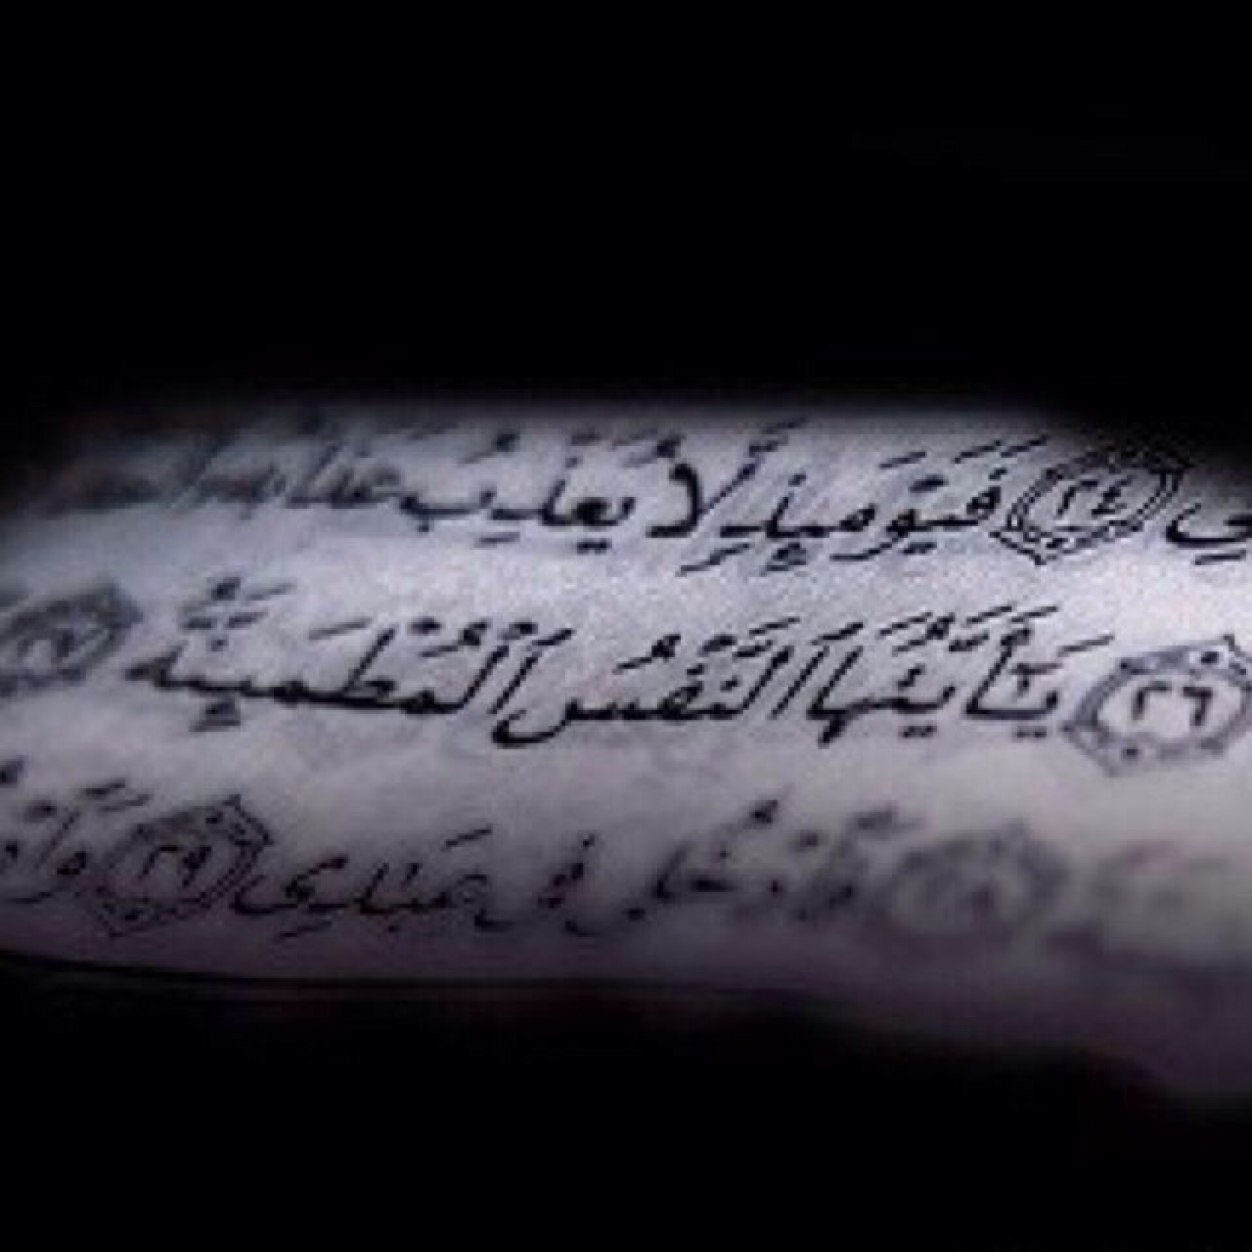 ي ٢٤ فَيَوْمَئِذٍ لَّا يُعَذِّبُ عَذَابَهُ
٢٦ يَٰٓأَيَّتُهَا ٱلنَّفْسُ ٱلْمُطْمَئِنَّةُ ٢٧
فَٱدْخُلِى فِى عِبَٰدِى ٢٩